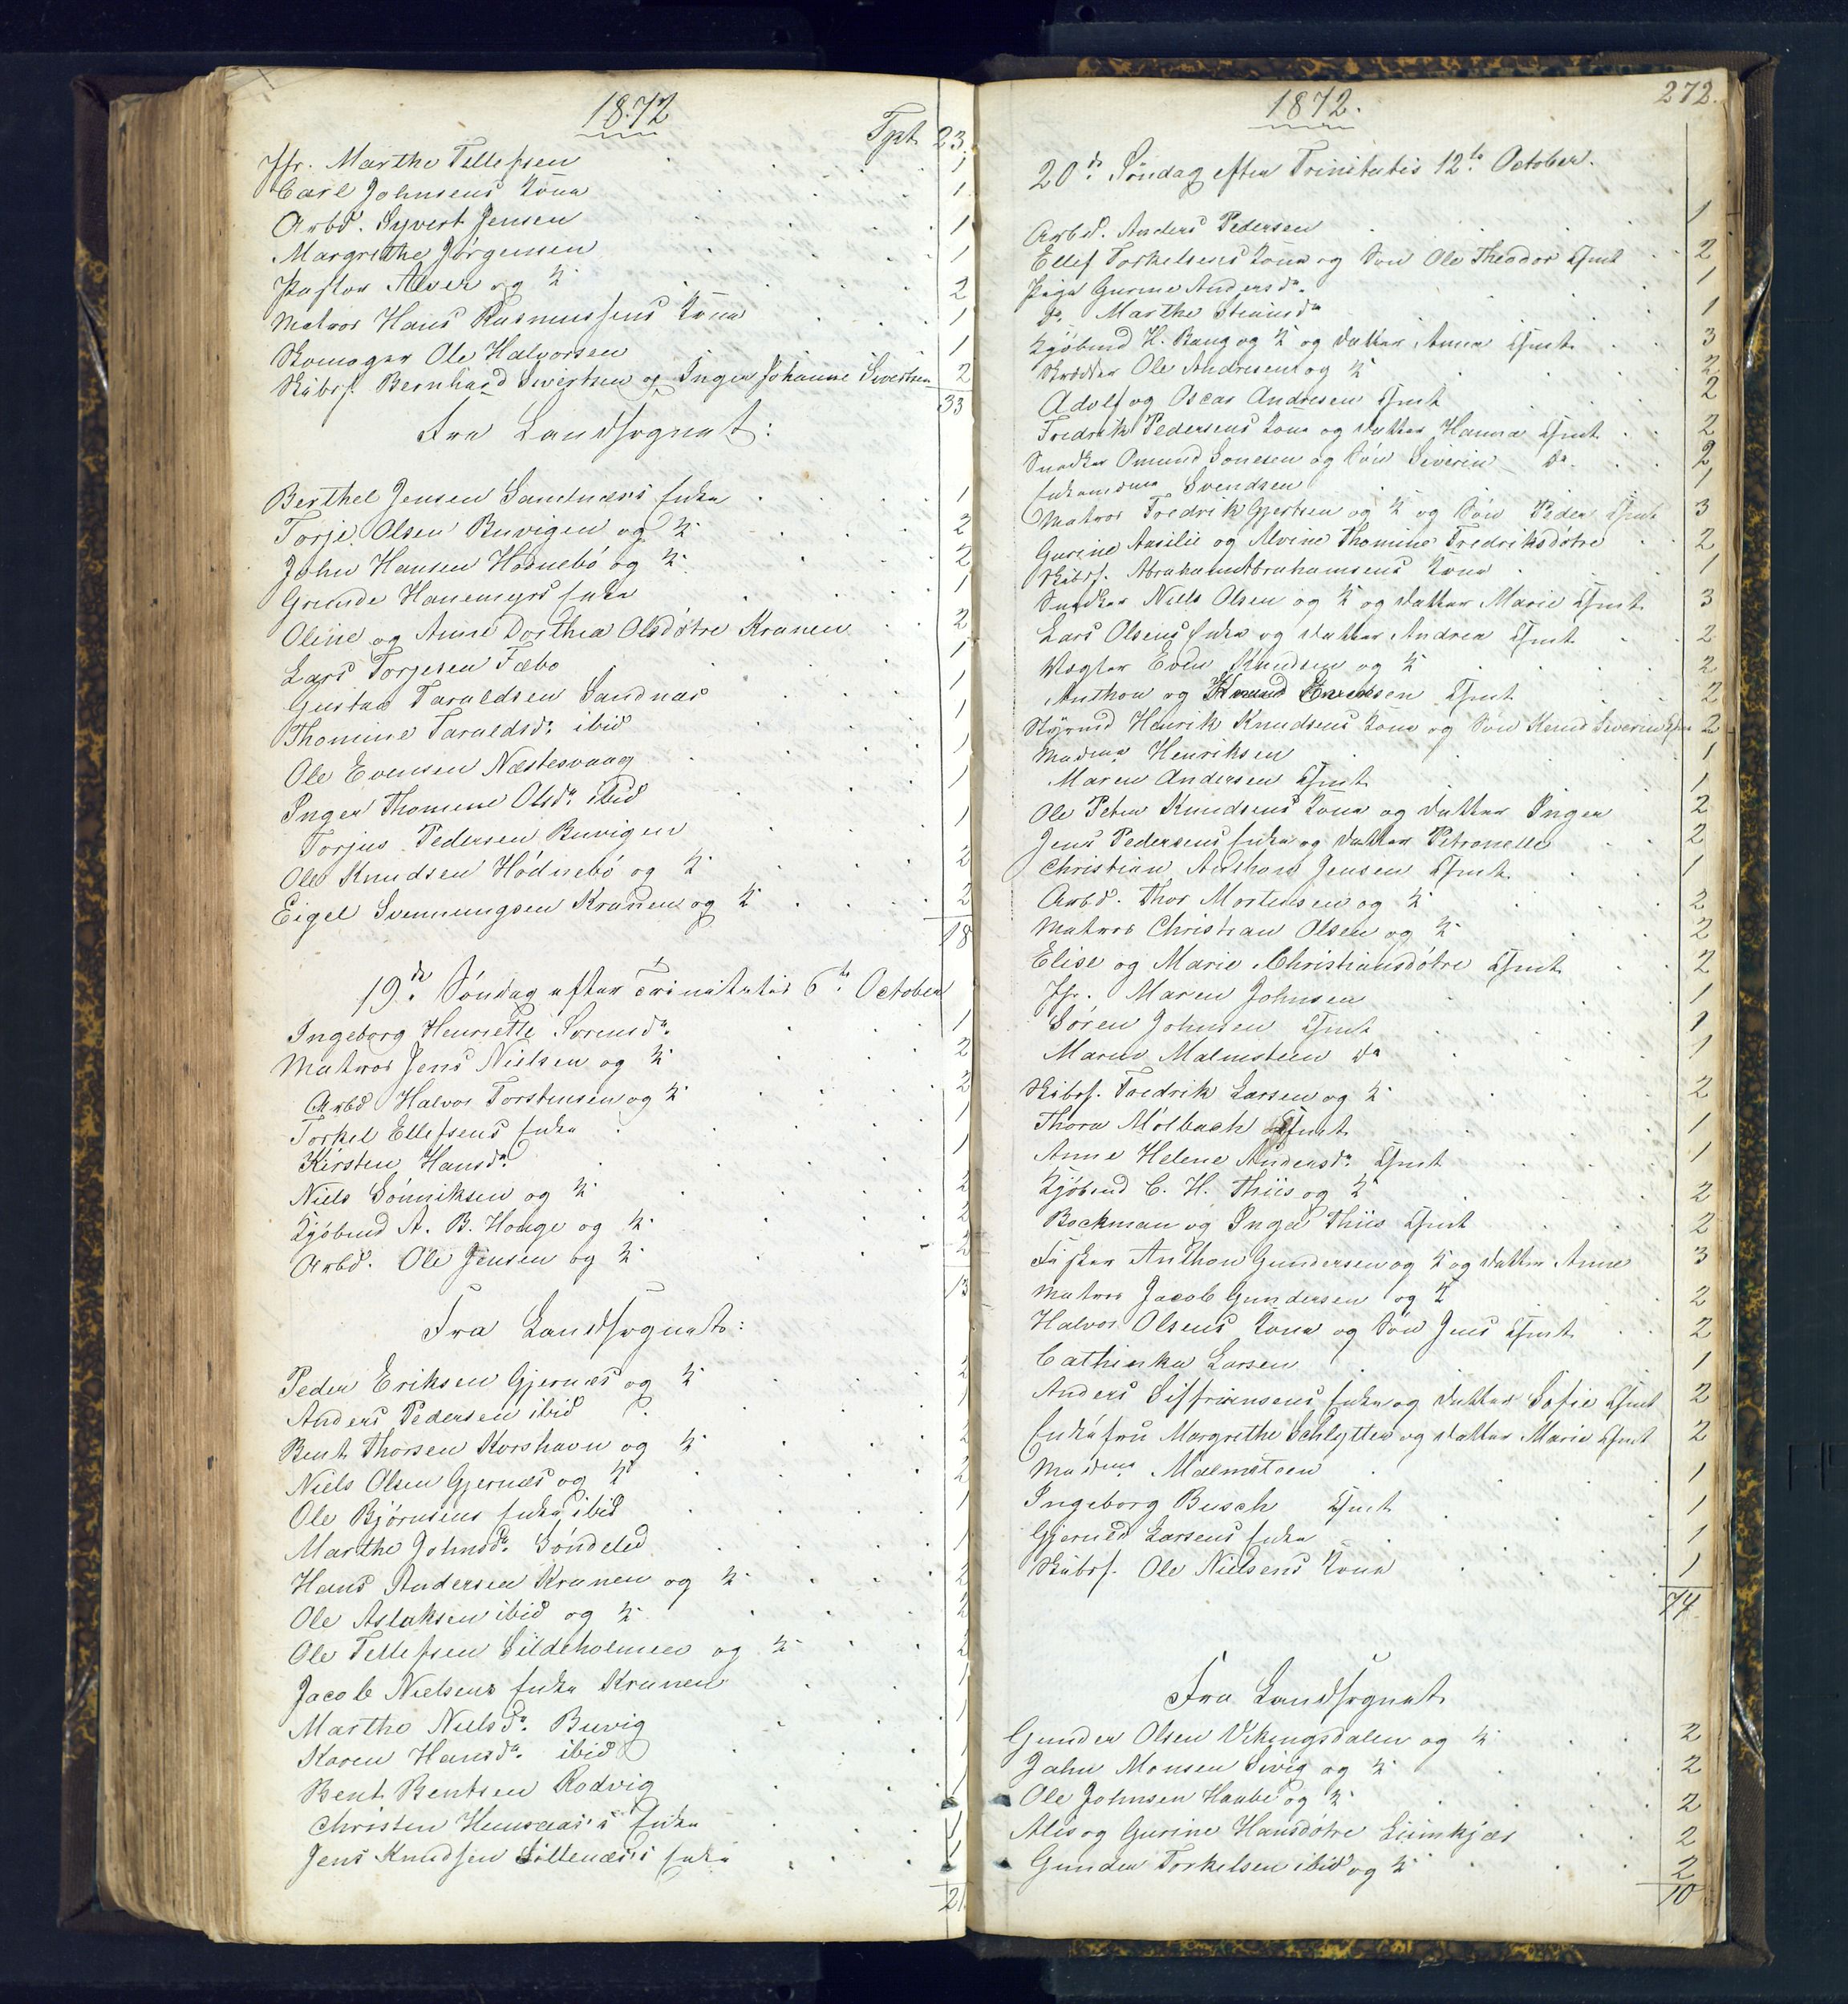 1872
Tpt. 23.
Jfr. Marthe Tellefsen 1
Carl Johnsens Kone 1
Arbd. Syvert Jensen 1
Margrethe Jörgensen 1
Pastor Alver og K. 2
Matros Hans Rasmussens Kone 1
Skomager Ole Halvorsen 1
Skibsf. Bernhard Sivertsen og Inger Johanne Sivertsen 2
33
Fra Landsognet:
Berthel Jensen Sandnæs's Enke 1
Torje Olsen Buvigen og K. 2
John Hansen Hödnebö og K. 2
Grunde Hanemyrs Enke 1
Oline og Anne Dorthea Olsdötre Kranen 2
Lars Torjesen Fæbo 1
Gustav Taraldsen Sandnæs 1
Thomine Taraldsd. ibid 1
Ole Evensen Næstesvaag 1
Inger Thomine Olsd. ibid 1
Torjus Pedersen Buvigen 1
Ole Knudsen Hödnebö og K. 2
Eigel Svennungsen Kranen og K. 2
18
19de Söndag efter Trinitatis 6te October
Ingeborg Henriette Sörensd. 1
Matros Jens Nielsen og K. 2
Arbd Halvor Torstensen og K. 2
Torkel Ellefsens Enke 1
Kirsten Hansd. 1
Niels Sönniksen og K. 2
Kjöbmd A. B. Houge og K. 2
Arbd. Ole Jensen og K. 2
13
Fra Landsognet:
Peder Eriksen Gjernæs og K. 2
Anders Pedersen ibid 1
Bent Thorsen Korshavn og K. 2
Niels Olsen Gjernæs og K. 2
Ole Björnsens Enke ibid 1
Marthe Johnsd. Söndeled 1
Hans Andersen Kranen og K. 2
Ole Aslaksen ibid og K. 2
Ole Tellefsen Sildeholmen og K. 2
Jacob Nielsens Enke Kranen 1
Marthe Nielsd. Buvig 1
Karen Hansd. ibid 1
Bent Bentsen Rodvig 1
Christen Enke 1
Jens Knudsen Enke 1
21.
272.
1872.
20de Söndag efter Trinitatis 12te October.
Arbd. Anders Pedersen 1
Ellef Torkelsens Kone og Sön Ole Theodor Cfmt 2
Pige Gurine Andersd. 1
do Marthe 1
Kjöbmd H. Bang og K. og Datter Anna Cfmt 3
Skrædder Ole Andresen og K. 2
Adolf og Oscar Andresen Cfmt 2
Fredrik Pedersens Kone og Datter Hanna Cfmt 2
Snedker Omund Sonesen og Sön Severin do 2
Enkemdme Svendsen 1
Matros Fredrik Gjertsen og K. og Sön Peder Cfmt 3
Gurine Aasilie og Alvine Thomine Fredriksdötre 2
Skibsf. Abraham Abrahamsens Kone 1
Snedker Niels Olsen og K. og Datter Marie Cfmt 3
Lars Olsens Enke og Datter Andrea Cfmt 2
Vægter Even Knudsen og K. 2
Anthon og Knud Evensen Cfmt 2
Styrmd Henrik Knudsens Kone og Sön Knud Severin Cfm 2
Madme Henriksen 1
Maren Andersen Cfmt 1
Ole Peter Knudsens Kone og Datter Inger 2
Jens Pedersens Enke og Datter Petronelle 2
Christian Anthon Jensen Cfmt 1
Arbd. Thor Mortensen og K. 2
Matros Christian Olsen og K. 2
Elise og Marie Christiansdötre Cfmt 2
Jfr. Maren Johnsen 1
Sören Johnsen Cfmt 1
Maren Malmsteen do 1
Skibsf. Fredrik Larsen og K. 2
Thora Mölbach Cfmt 1
Anne Helene Andersd. Cfmt 1
Kjöbmd C. H. Thiis og K. 2
Bockman og Inga Thiis Cfmt 2
Fisker Anthon Gundersen og K. og Datter Anne 3
Matros Jacob Gundersen og K. 2
Halvor Olsens Kone og Sön Jens Cfmt 2
Cathinka Larsen 1
Anders Siffrinsens Enke og Datter Sofie Cfmt 2
Enkefru Margrethe Schlytter og Datter Marie Cfmt 2
Madme Malmsteen 1
Ingeborg Busch Cfmt 1
Larsens Enke 1
Skibsf. Ole Nielsens Kone 1
74.
Fra Landsognet
Gunder Olsen Vikingsdalen og K. 2
John Monsen Sivig og K. 2
Ole Johnsen Haube og K. 2
Alis og Gurine Hansdötre Liimkjær 2
Gunder Torkelsen ibid og K. 2
10